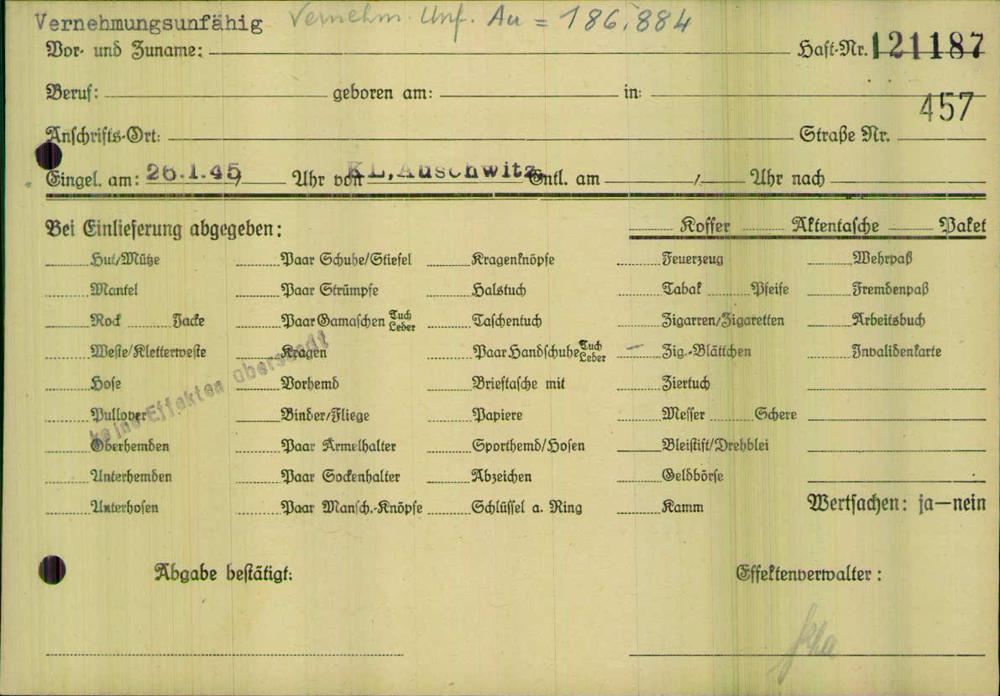 Vernehmungsunfähig Vernehm. Unf. Au = 186,884
Vor- und Zuname: Haft-Nr. 121187
Beruf: geboren am: in: 457
Anschrifts-Ort: Straße Nr.
Eingel. am: 26.1.45 Uhr von KL, Auschwitz Entl. am Uhr nach
Bei Einlieferung abgegeben: Koffer Aktentasche Paket
Hut/Mütze Paar Schuhe/Stiefel Kragenknöpfe Feuerzeug Wehrpaß
Mantel Paar Strümpfe Halstuch Tabak Pfeife Fremdenpaß
Rock Jacke Paar Gamaschen Tuch Leder Taschentuch Zigarren/Zigaretten Arbeitsbuch
Weste/Kletterweste Kragen Paar Handschuhe Tuch Leder Zig.-Blättchen Invalidenkarte
Hose Vorhemd Brieftasche mit Ziertuch
Pullover Binder/Fliege Papiere Messer Schere
keine Effekten übersandt
Oberhemden Paar Ärmelhalter Sporthemd/Hosen Bleistift/Drehblei
Unterhemden Paar Sockenhalter Abzeichen Geldbörse
Unterhosen Paar Mansch.-Knöpfe Schlüssel a. Ring Kamm Wertsachen: ja—nein
Abgabe bestätigt: Effektenverwalter: